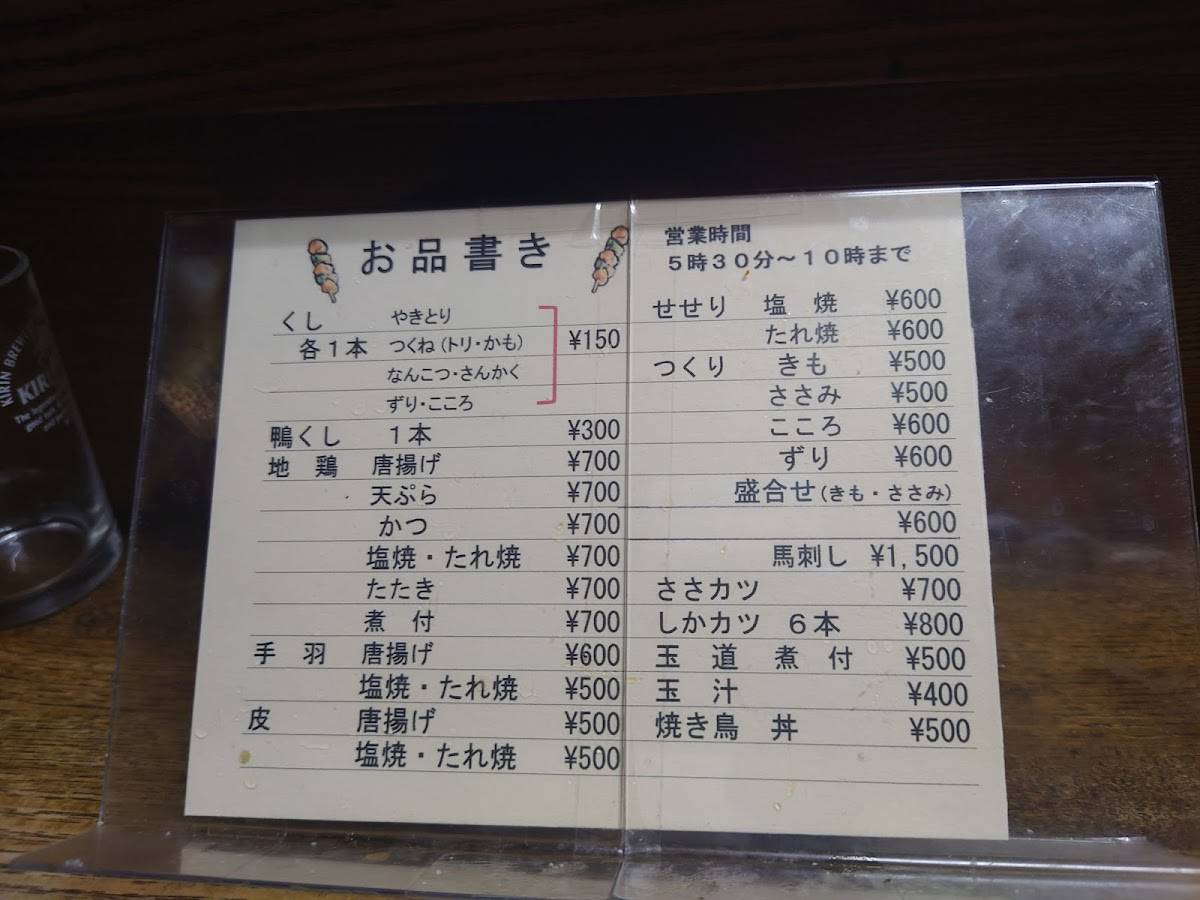 お品書き
くし　やきとり
各１本　つくね（トリ・かも）　¥150
なんこつ・さんかく
ずり・こころ
鴨くし　１本　¥300
地　鶏　唐揚げ　¥700
天ぷら　¥700
かつ　¥700
塩焼・たれ焼　¥700
たたき　¥700
煮　付　¥700
手　羽　唐揚げ　¥600
塩焼・たれ焼　¥500
皮　唐揚げ　¥500
塩焼・たれ焼　¥500
営業時間
５時３０分～１０時まで
せせり　塩　焼　¥600
たれ焼　¥600
つくり　きも　¥500
ささみ　¥500
こころ　¥600
ずり　¥600
盛合せ（きも・ささみ）
¥600
馬刺し　¥1,500
ささカツ　¥700
しかカツ　６本　¥800
玉　道　煮　付　¥500
玉　汁　¥400
焼き鳥　丼　¥500
KIRIN BREW
KIR